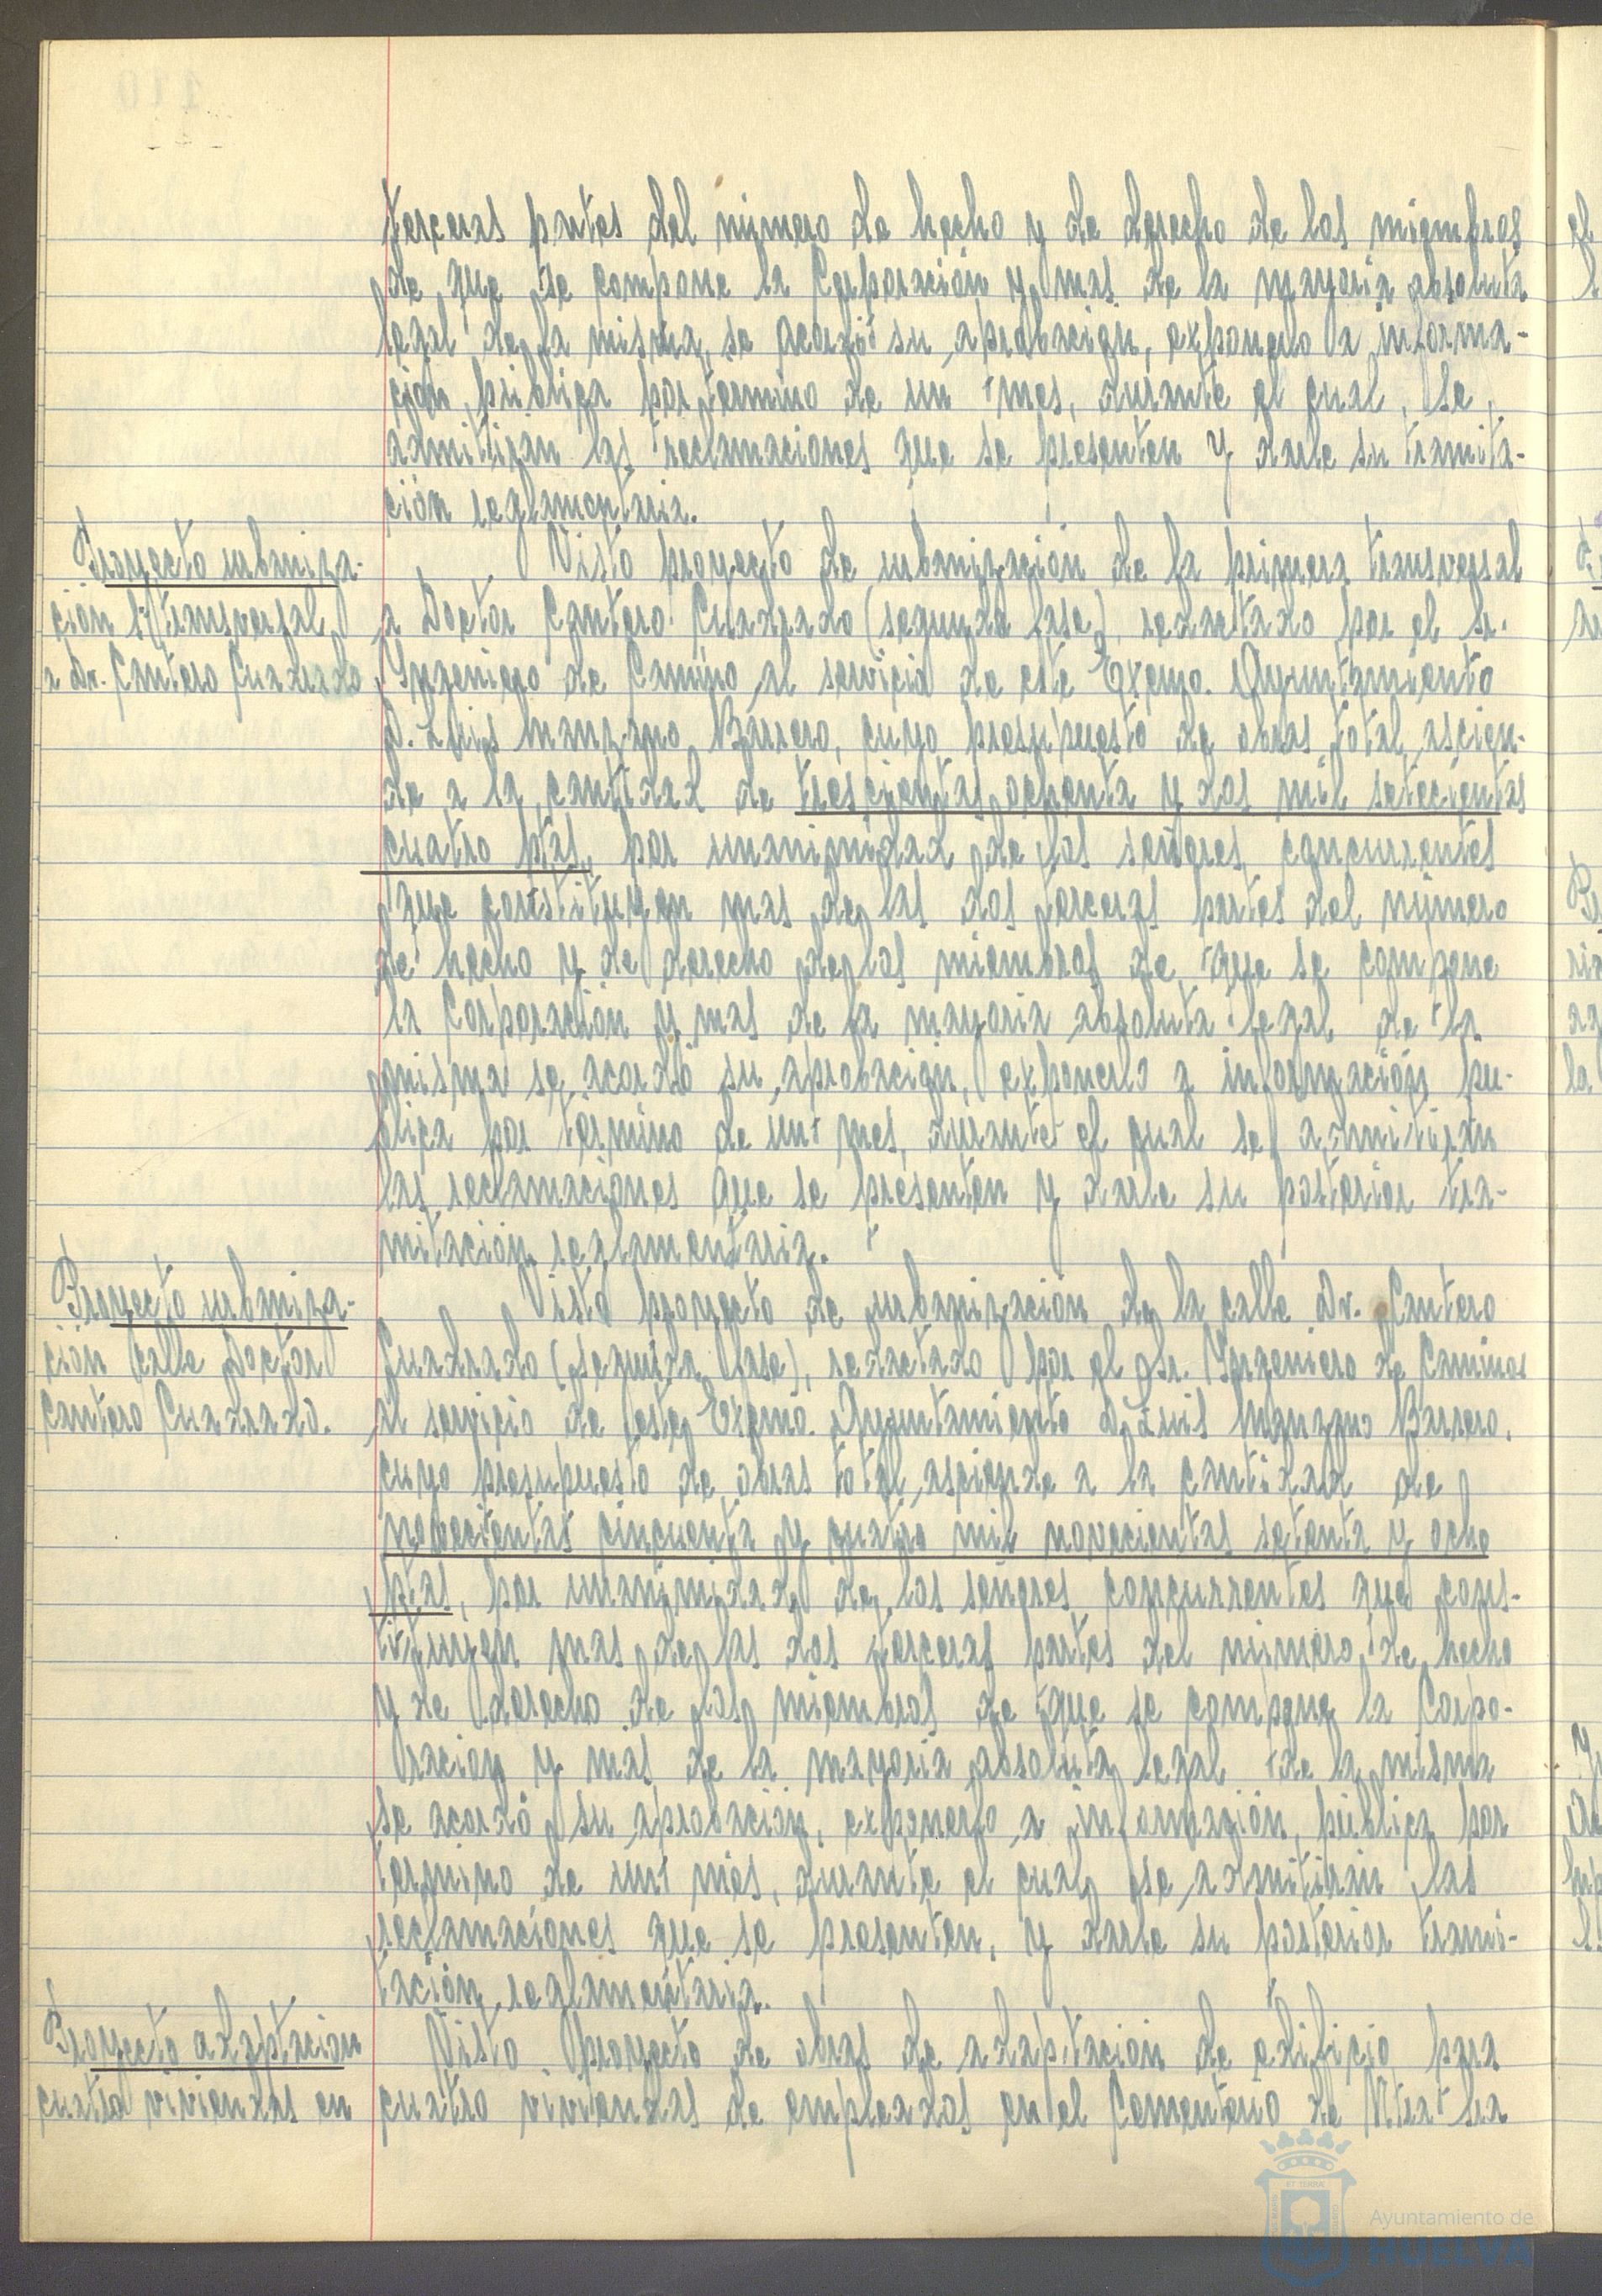 terceras partes del número de hecho y de derecho de los miembros
de que se compone la Corporación y mas de la mayoria absoluta
legal de la misma, se acordó su aprobación, exponerlo a informa-
ción pública por termino de un mes, durante el cual, se
admitiran las reclamaciones que se presenten y darle su tramita-
ción reglamentaria.
Proyecto urbaniza-
ción 1ª transversal
a Dr. Cantero Cuadrado
Visto proyecto de urbanización de la primera transversal
a Doctor Cantero Cuadrado (segunda fase), redactado por el Sr.
Ingeniero de Camino al servicio de este Excmo. Ayuntamiento
D. Luis Manzano Barrero, cuyo presupuesto de obras total ascien-
de a la cantidad de trescientas ochenta y dos mil setecientas
cuatro ptas, por unanimidad de los señores concurrentes
que constituyen mas de las dos terceras partes del número
de hecho y de derecho de los miembros de que se compone
la Corporación y mas de la mayoria absoluta legal de la
misma se acordó su aprobación, exponerlo a información pu-
blica por termino de un mes, durante el cual se admitirán
las reclamaciones que se presenten y darle su posterior tra-
mitación reglamentaria.
Proyecto urbaniza-
ción calle Doctor
Cantero Cuadrado.
Visto proyecto de urbanización de la calle Dr. Cantero
Cuadrado (segunda fase), redactado por el Sr. Ingeniero de Caminos
al servicio de este Excmo. Ayuntamiento D. Luis Manzano Barrero,
cuyo presupuesto de obras total asciende a la cantidad de
novecientas cincuenta y cuatro mil novecientas setenta y ocho
ptas, por unanimidad de los señores concurrentes que cons-
tituyen mas de las dos terceras partes del número de hecho
y de derecho de los miembros de que se compone la Corpo-
ración y mas de la mayoria absoluta legal de la misma
se acordó su aprobación, exponerlo a información pública por
termino de un mes, durante el cual se admitirán las
reclamaciones que se presenten, y darle su posterior trami-
tación reglamentaria.
Proyecto adaptación
cuatro viviendas en
Visto proyecto de obras de adaptación de edificio para
cuatro viviendas de empleados en el Cementerio de Ntra Sra
Ayuntamiento de
HUELVA